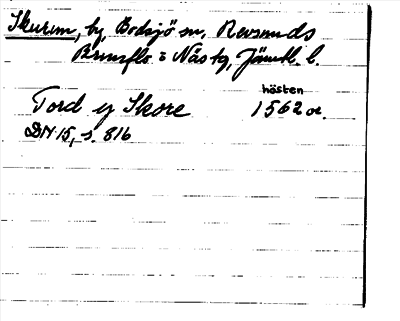 Skurun, by, Bodsjö sn, Revsunds
Brunflo o Näs tg, Jämtl. l.
hösten
Tord y Skore 1562 or.
DN 15, s. 816